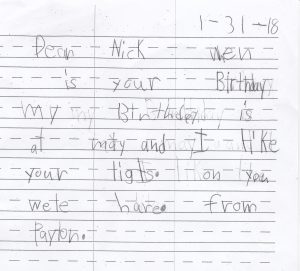 1-31-18
Dear Nick wen
is your Birthday
My Birthday is
at may and I like
your tights. I on you
wete hare. from
Payton.